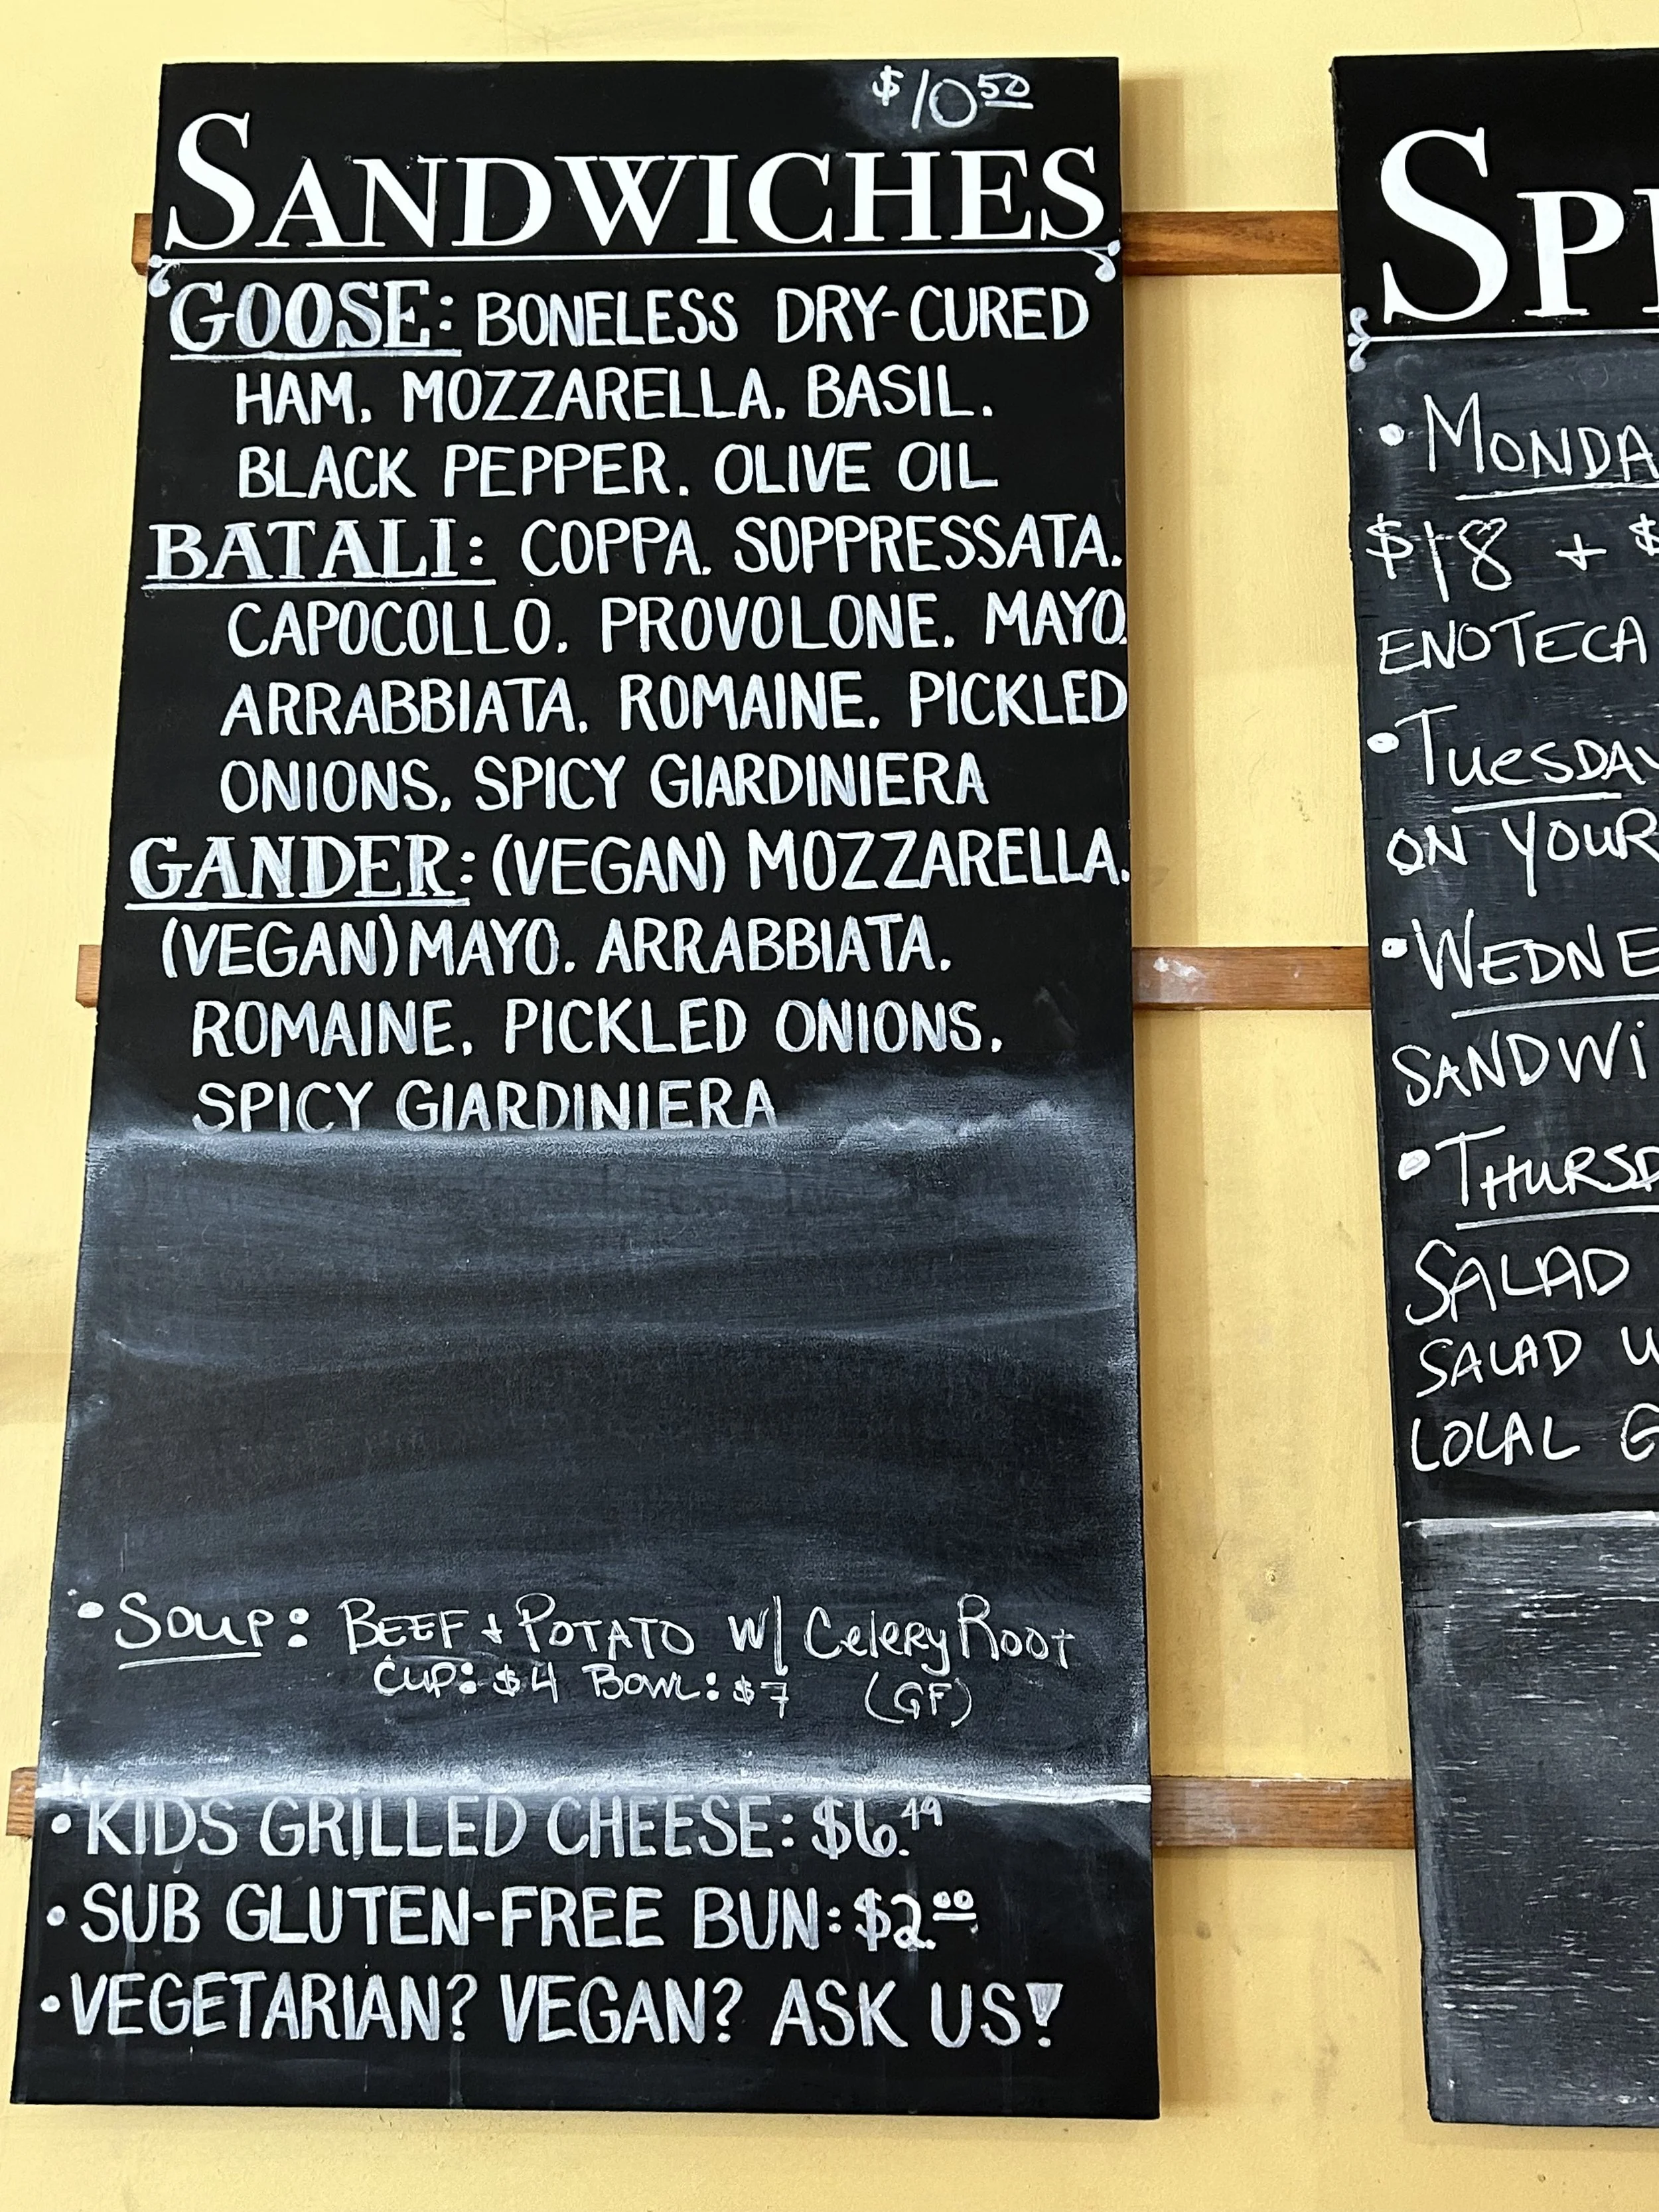 $10 50
SANDWICHES
GOOSE: BONELESS DRY-CURED
HAM, MOZZARELLA, BASIL,
BLACK PEPPER, OLIVE OIL
BATALI: COPPA, SOPPRESSATA,
CAPOCOLLO, PROVOLONE, MAYO,
ARRABBIATA, ROMAINE, PICKLED
ONIONS, SPICY GIARDINIERA
GANDER: (VEGAN) MOZZARELLA,
(VEGAN) MAYO, ARRABBIATA,
ROMAINE, PICKLED ONIONS,
SPICY GIARDINIERA
• SOUP: BEEF + POTATO W/ CELERY ROOT
CUP: $4 BOWL: $7 (GF)
• KIDS GRILLED CHEESE: $6.49
• SUB GLUTEN-FREE BUN: $2.00
• VEGETARIAN? VEGAN? ASK US!
SP
• MONDA
$18 + $
ENOTECA
• TUESDAY
ON YOUR
• WEDNE
SANDWI
• THURSD
SALAD
SALAD W
LOCAL G